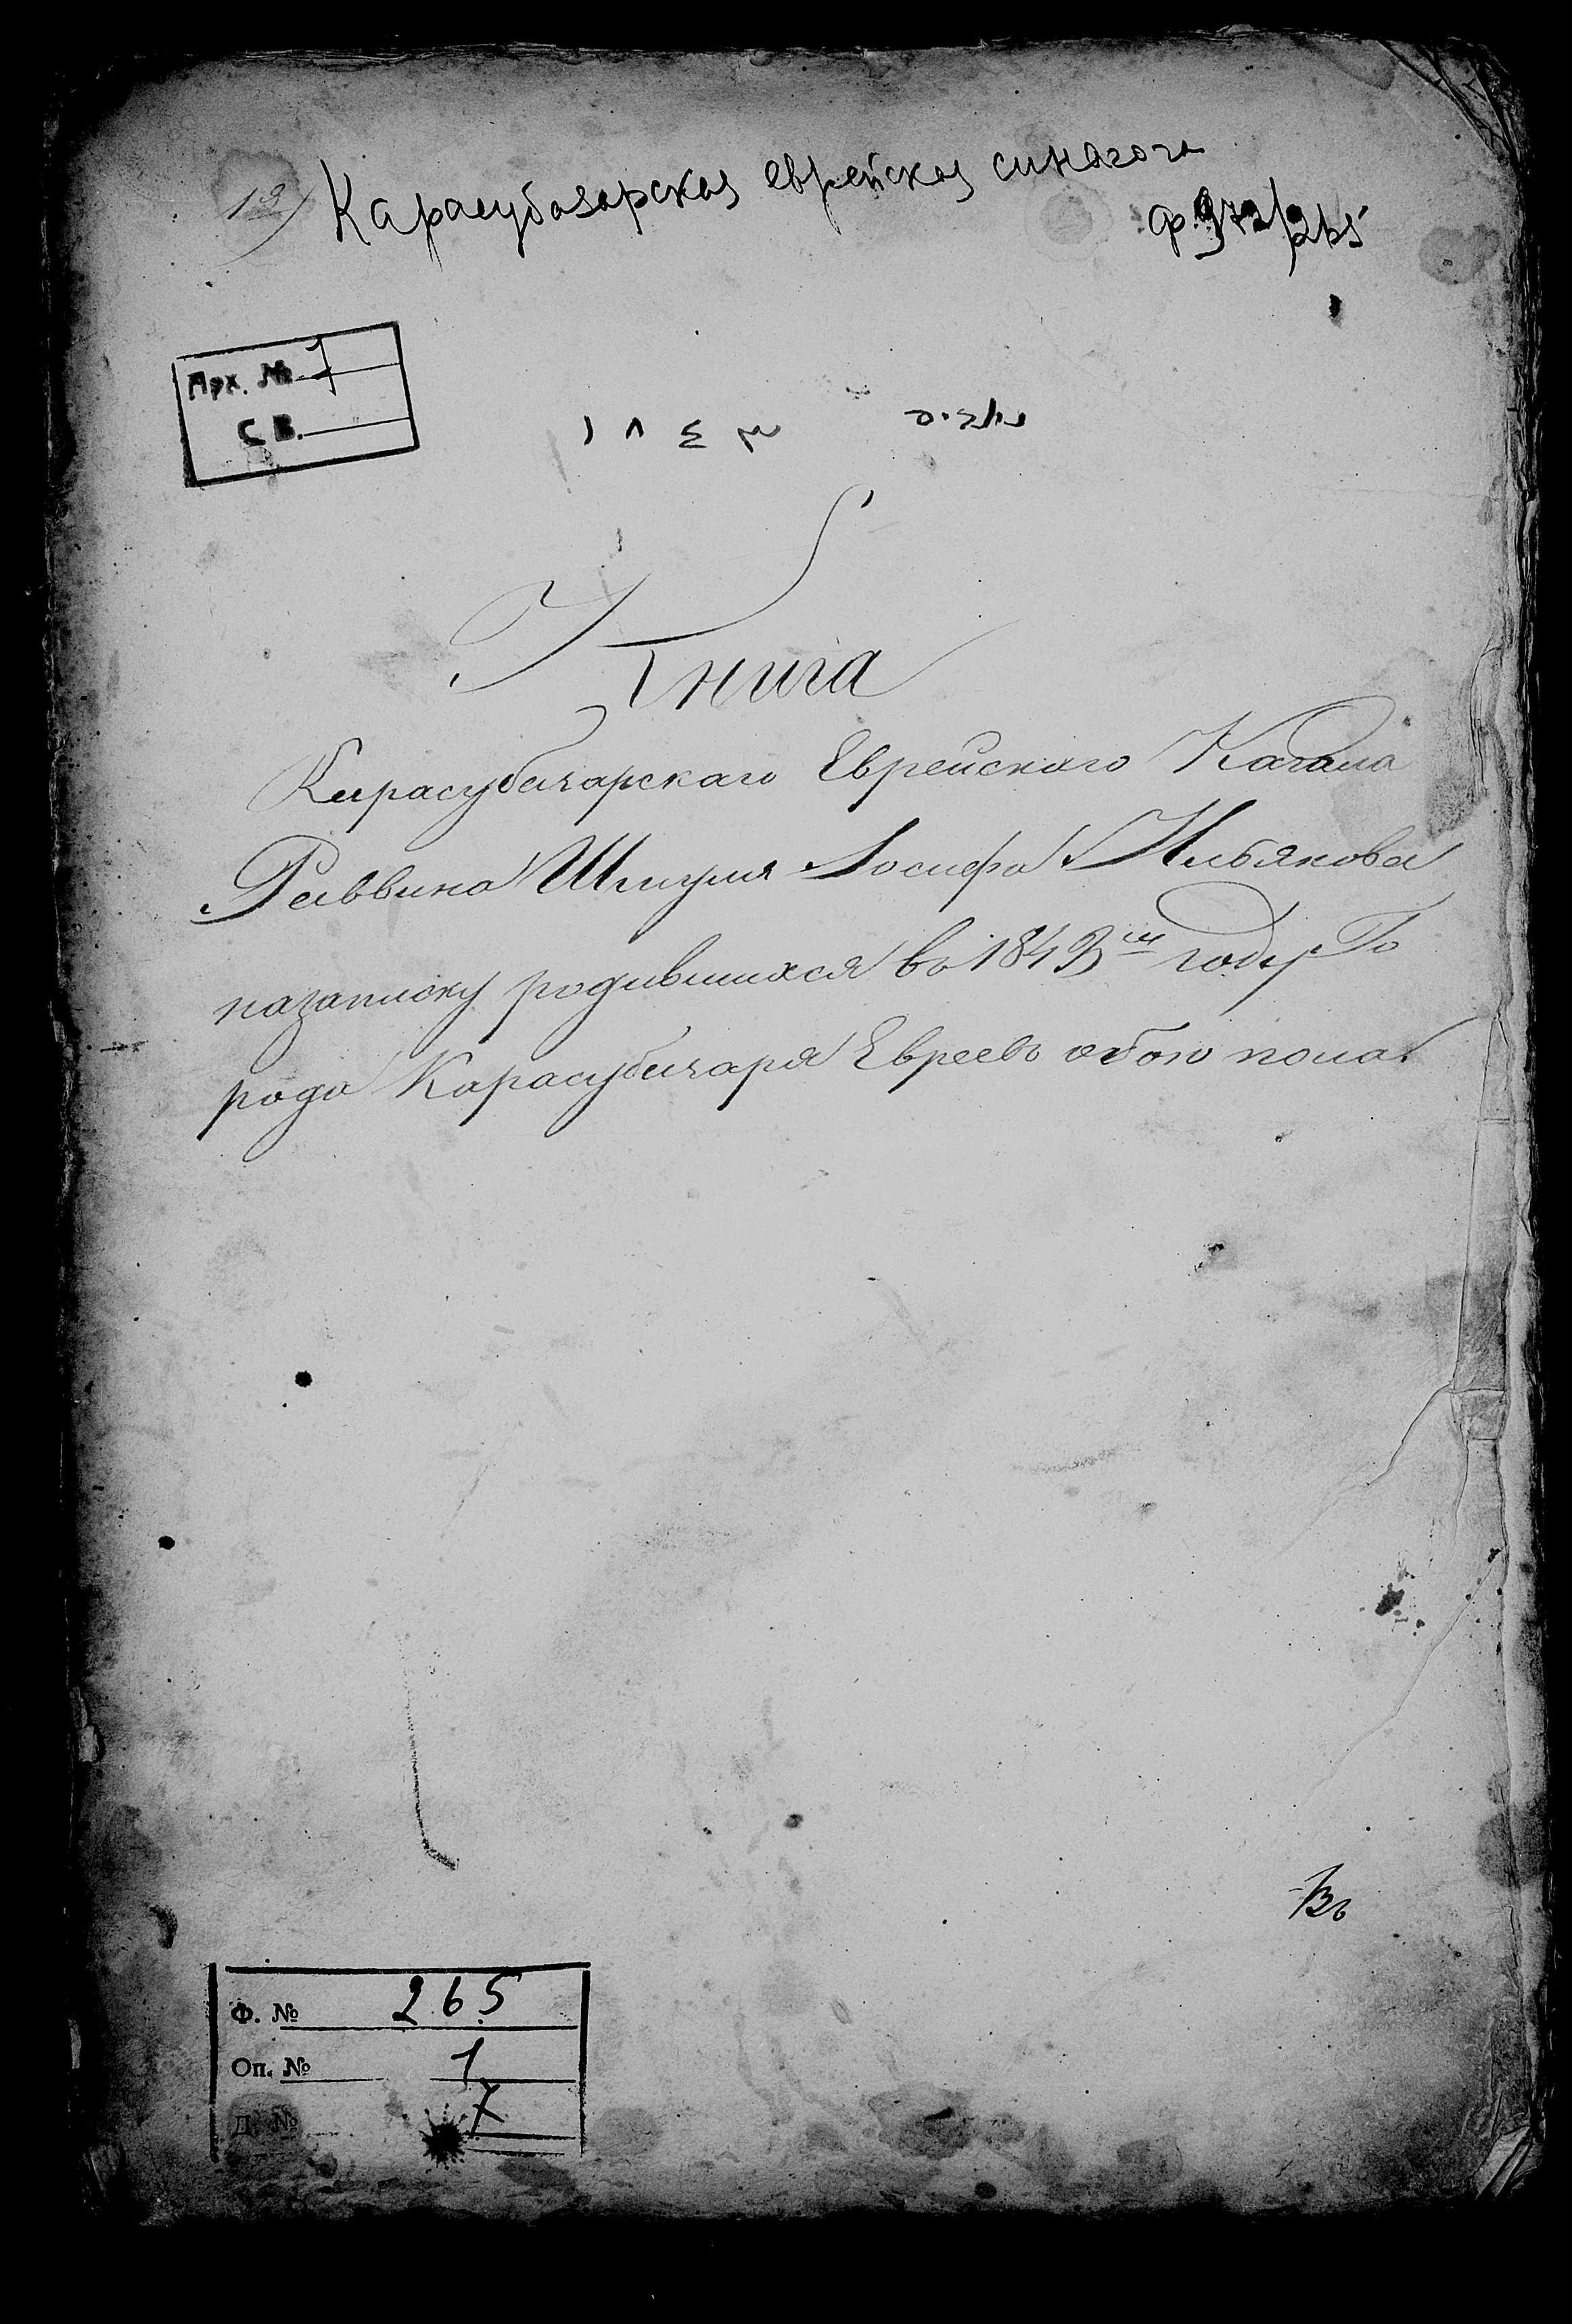 13) Карасубазарская еврейская синагога
ф. 265
Арх. № 7
С В.
١٨٤٣
Книга
Карасубазарскаго Еврейскаго Кагала
Раввина Шмуля Іосифа Ильякова
на записку родившихся въ 1843мъ году Го
рода Карасубазара Евреевъ обою пола
Въ
Ф. № 265
Оп. № 1
Д. № 7